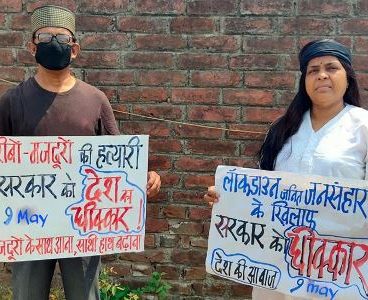 रीबों-मजदूरों की हत्यारी
सरकार को देश का
धिक्कार!
9 May
के साथ आवो, साथी हाथ बढ़ावो
लॉकडाउन जनित जनसंहार
के खिलाफ
सरकार को धिक्कार
देश की आवाज
9 May